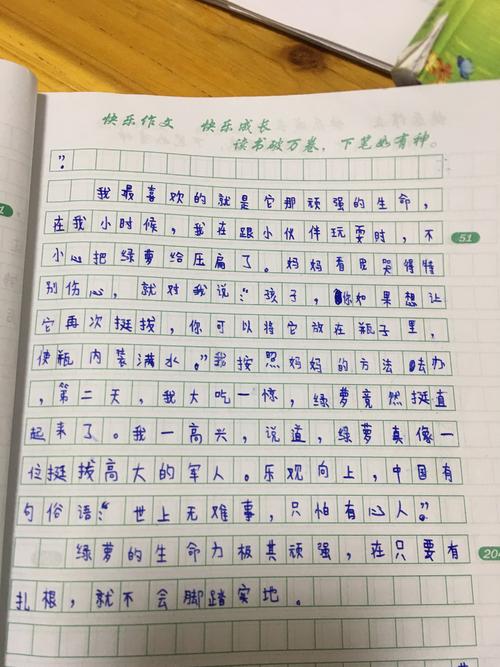 快乐作文 快乐成长
读书破万卷，下笔如有神。
”。
我最喜欢的就是它那顽强的生命，
在我小时候，我在跟小伙伴玩耍时，不
小心把绿萝给压扁了。妈妈看见哭得特
别伤心，就对我说：“孩子，你如果想让
它再次挺拔，你可以将它放在瓶子里，
使瓶内装满水。”我按照妈妈的方法去办
，第二天，我大吃一惊，绿萝竟然挺直
起来了。我一高兴，说道，绿萝真像一
位挺拔高大的军人。乐观向上，中国有
句俗语：“世上无难事，只怕有心人。”
绿萝的生命力极其顽强，在只要有
扎根，就不会脚踏实地。
51
204